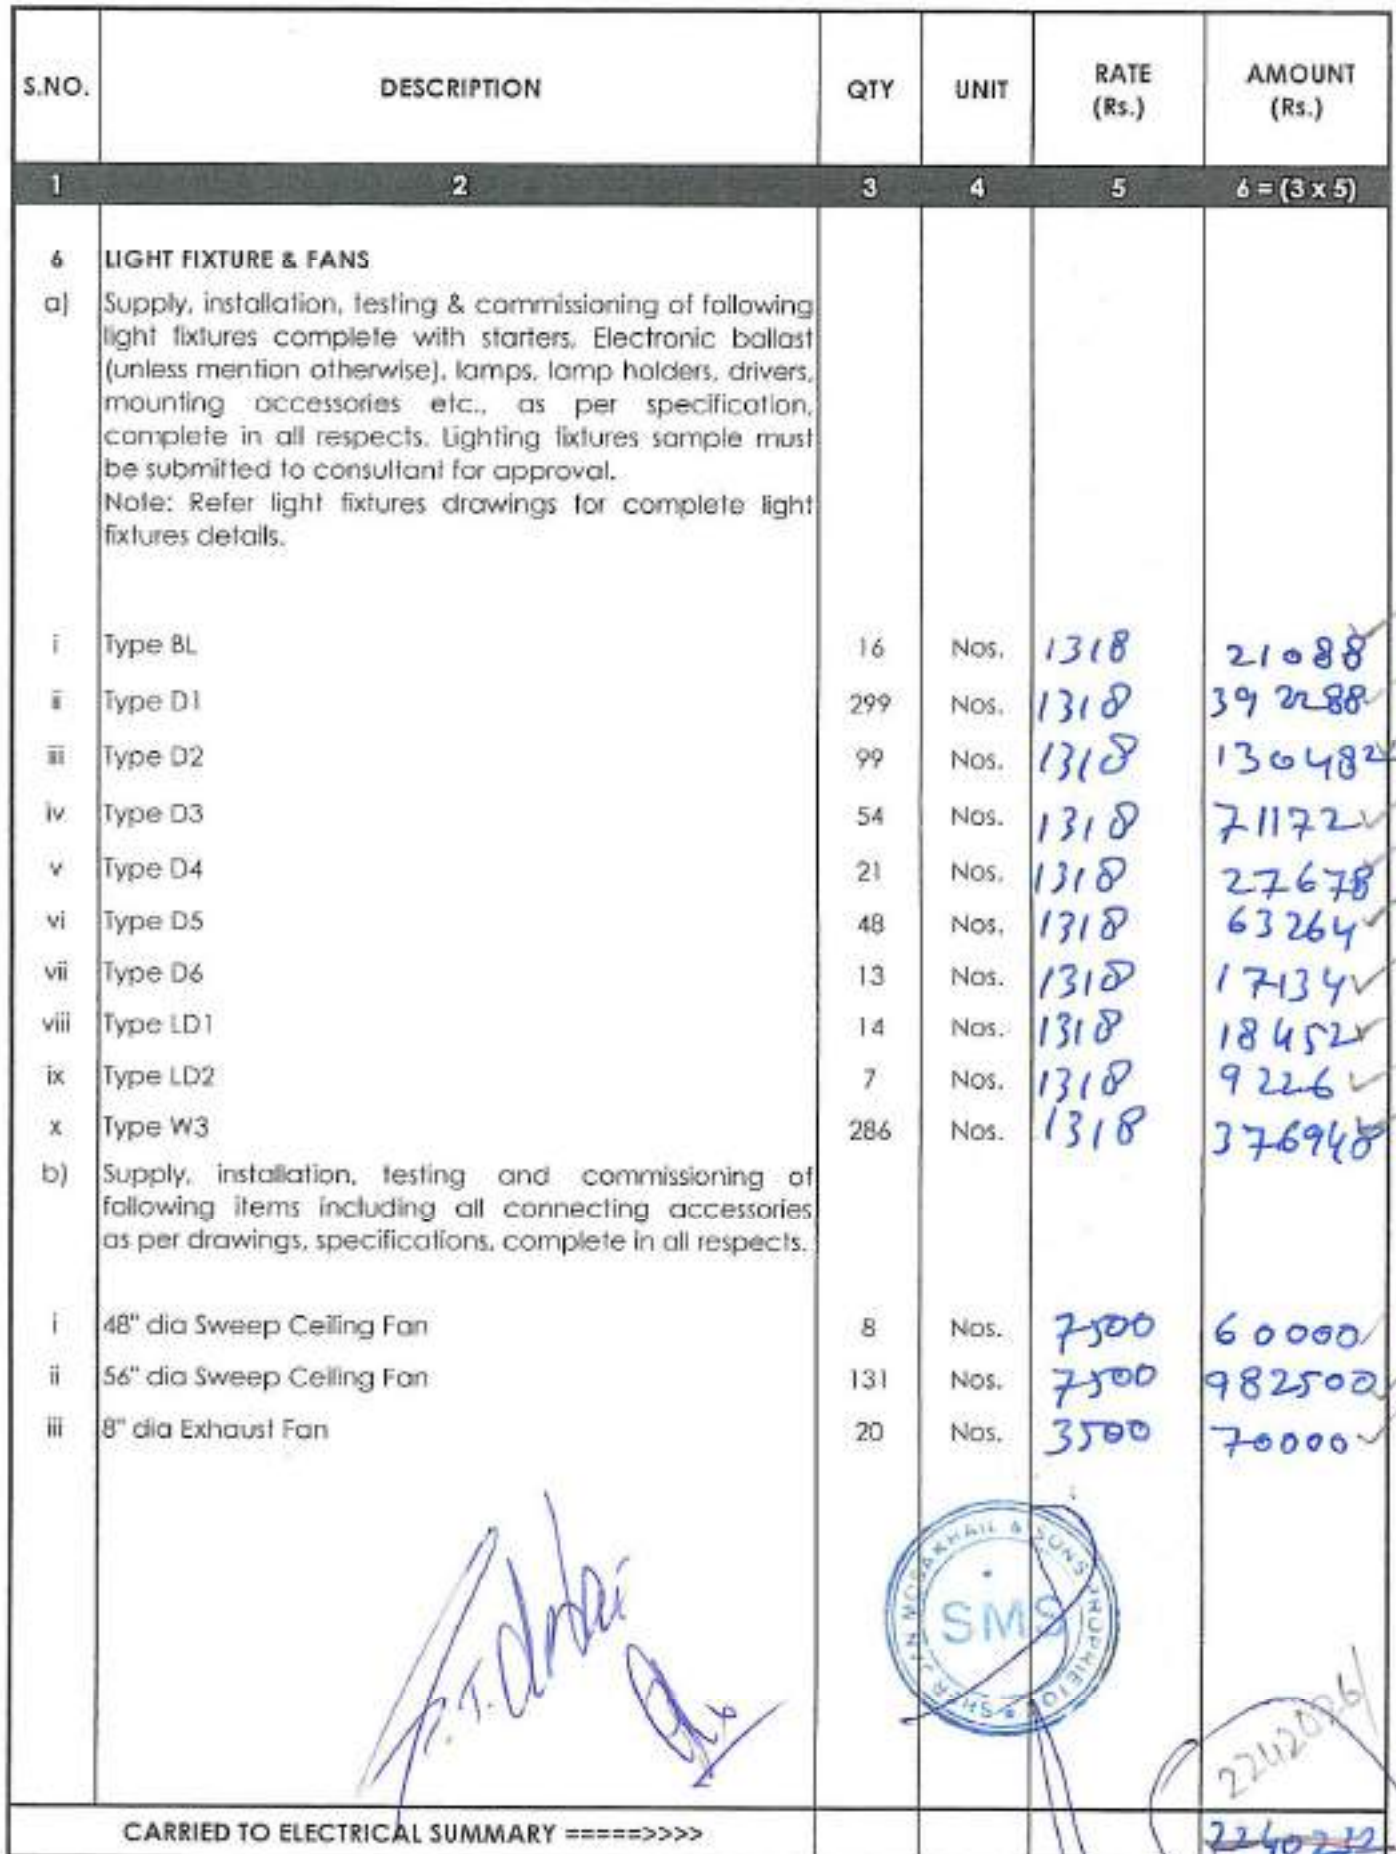 S.NO. DESCRIPTION QTY UNIT RATE (Rs.) AMOUNT (Rs.)
1 2 3 4 5 6 = (3 x 5)
6 LIGHT FIXTURE & FANS
a) Supply, installation, testing & commissioning of following
light fixtures complete with starters, Electronic ballast
(unless mention otherwise), lamps, lamp holders, drivers,
mounting accessories etc., as per specification,
complete in all respects. Lighting fixtures sample must
be submitted to consultant for approval.
Note: Refer light fixtures drawings for complete light
fixtures details.
i Type BL 16 Nos. 1318 21088
ii Type D1 299 Nos. 1318 392288
iii Type D2 99 Nos. 1318 130482
iv Type D3 54 Nos. 1318 71172
v Type D4 21 Nos. 1318 27678
vi Type D5 48 Nos. 1318 63264
vii Type D6 13 Nos. 1318 17134
viii Type LD1 14 Nos. 1318 18452
ix Type LD2 7 Nos. 1318 9226
x Type W3 286 Nos. 1318 376948
b) Supply, installation, testing and commissioning of
following items including all connecting accessories
as per drawings, specifications, complete in all respects.
i 48" dia Sweep Ceiling Fan 8 Nos. 7500 60000
ii 56" dia Sweep Ceiling Fan 131 Nos. 7500 982500
iii 8" dia Exhaust Fan 20 Nos. 3500 70000
SHER JAN MOSAKHAIL & SONS PROPRIETOR
SMS
2242026/
CARRIED TO ELECTRICAL SUMMARY =====>>>> 2240232